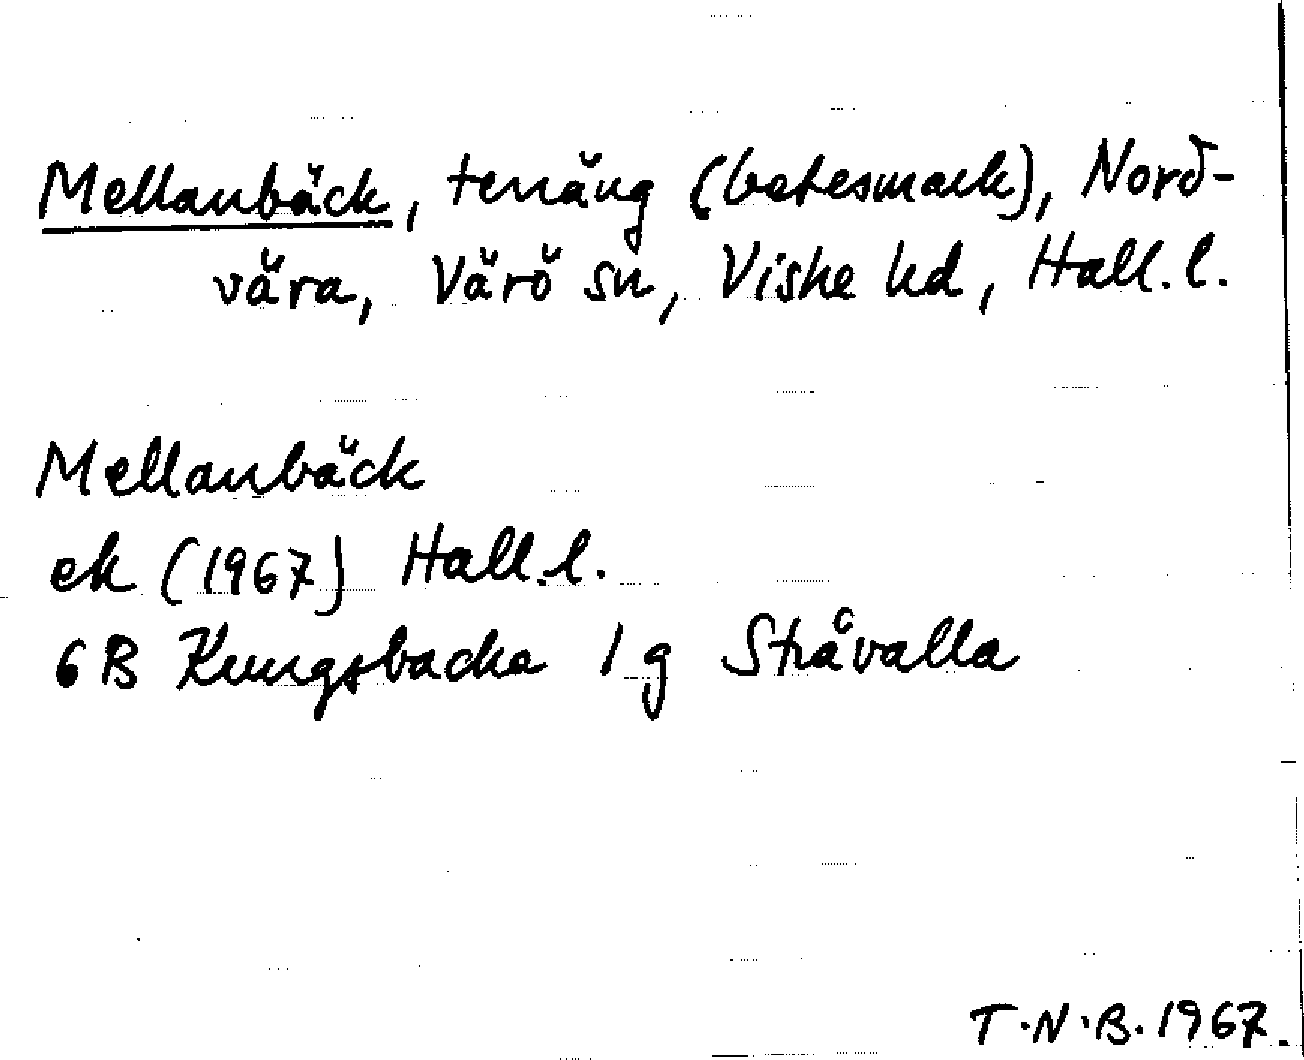 Mellanbäck, terräng (betesmark), Nord-
vära, Värö sn, Viske hd, Hall. l.
Mellanbäck
ek (1967) Hall. l.
6B Kungsbacka 1 g Stråvalla
T.N.B. 1967.